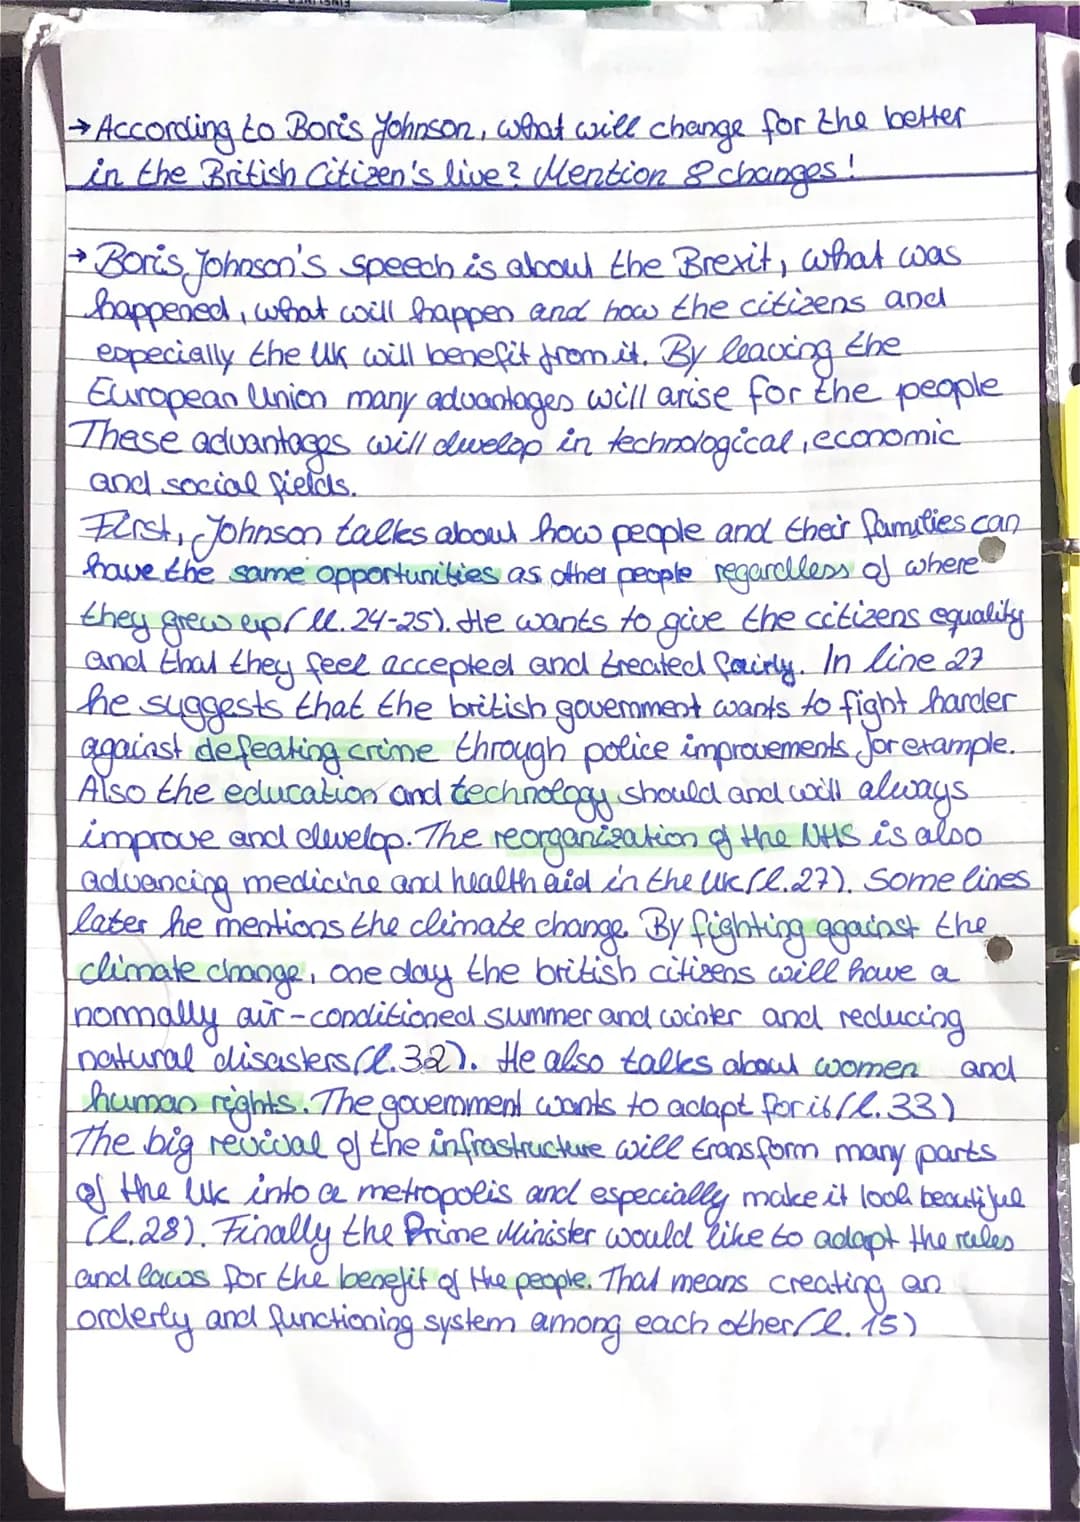 → According to Boris Johnson, what will change for the better
in the British Citizen's live? Mention 8 changes!
→ Boris Johnson's speech is about the Brexit, what was
happened, what will happen and how the citizens and
especially the UK will benefit from it. By leaving the
European Union many advantages will arise for the people
These advantages will develop in technological, economic
and social fields.
First, Johnson talks about how people and their families can
have the same opportunities as other people regardless of where
they grew up (ll. 24-25). He wants to give the citizens equality
and that they feel accepted and treated fairly. In line 27
he suggests that the british government wants to fight harder
against defeating crime through police improvements, for example.
Also the education and technology should and will always
improve and develop. The reorganization of the NHS is also
advancing medicine and health aid in the UK (l. 27). Some lines
later he mentions the climate change. By fighting against the
climate change, one day the british citizens will have a
normally air-conditioned summer and winter and reducing
natural disasters (l. 32). He also talks about women and
human rights. The government wants to adapt for it (l. 33)
The big revival of the infrastructure will transform many parts
of the UK into a metropolis and especially make it look beautiful
(l. 28). Finally the Prime Minister would like to adapt the rules
and laws for the benefit of the people. That means creating an
orderly and functioning system among each other (l. 15)